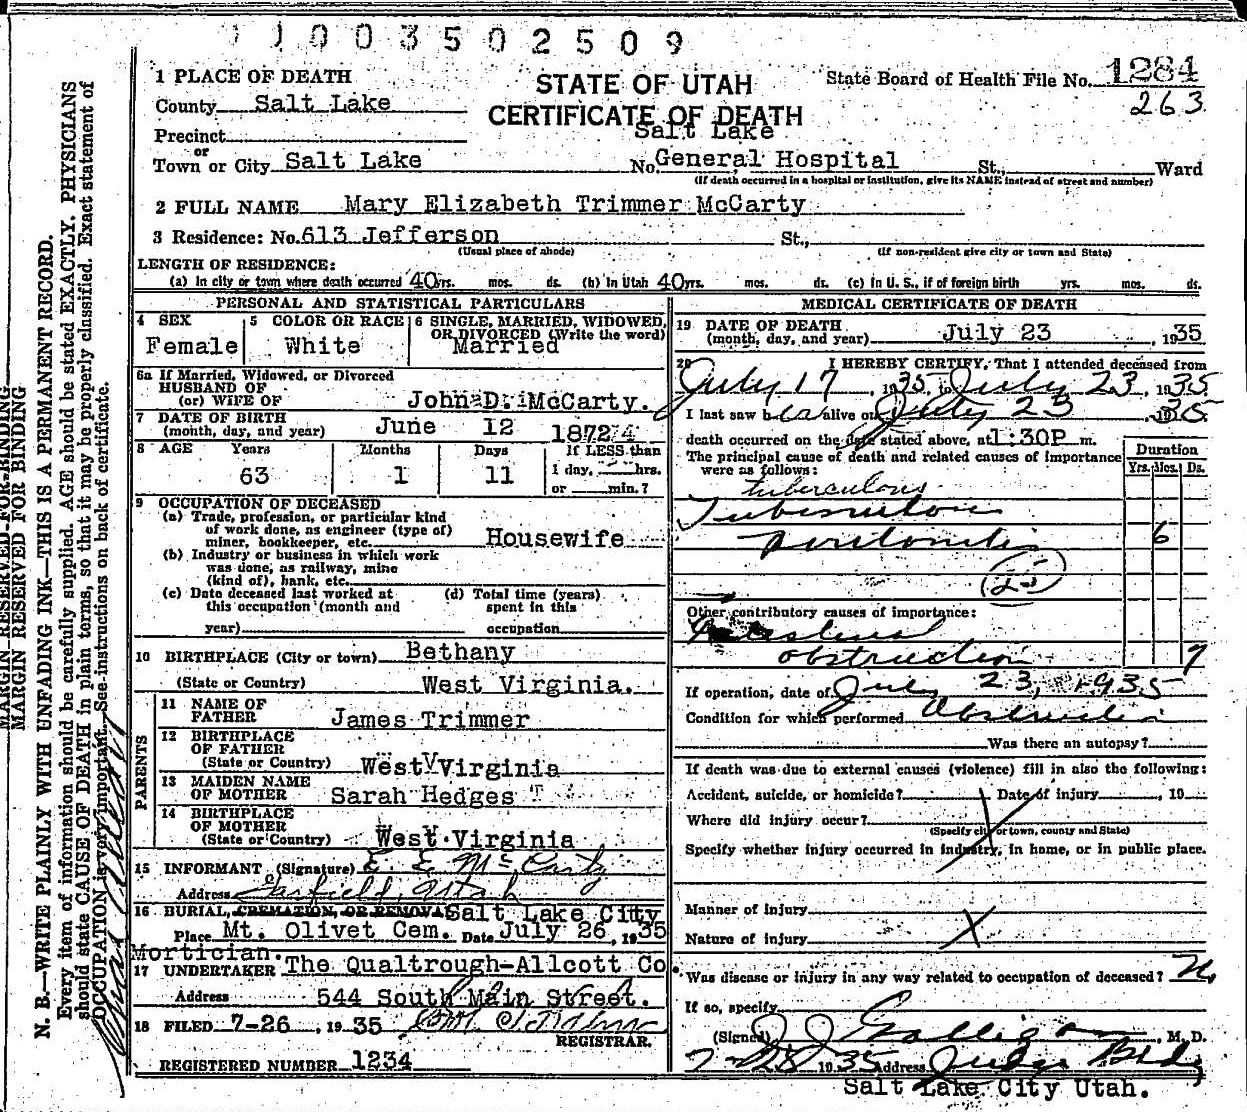 1003502509
1 PLACE OF DEATH
STATE OF UTAH
CERTIFICATE OF DEATH
State Board of Health File No. 1284
263
County Salt Lake
Precinct
or
Town or City Salt Lake
Salt Lake
No. General Hospital St., Ward
(If death occurred in a hospital or institution, give its NAME instead of street and number)
2 FULL NAME Mary Elizabeth Trimmer McCarty
3 Residence: No. 613 Jefferson St.,
(Usual place of abode) (If non-resident give city or town and State)
LENGTH OF RESIDENCE:
(a) In city or town where death occurred 40 yrs. mos. ds. (b) In Utah 40 yrs. mos. ds. (c) In U. S., if of foreign birth yrs. mos. ds.
PERSONAL AND STATISTICAL PARTICULARS
4 SEX
Female
5 COLOR OR RACE
White
6 SINGLE, MARRIED, WIDOWED, OR DIVORCED (Write the word)
Married
6a If Married, Widowed, or Divorced
HUSBAND OF
(or) WIFE OF John D. McCarty.
7 DATE OF BIRTH
(month, day, and year) June 12 1872
8 AGE Years Months Days If LESS than
63 1 11 1 day, hrs.
or min.?
9 OCCUPATION OF DECEASED
(a) Trade, profession, or particular kind
of work done, as engineer (type of)
miner, bookkeeper, etc. Housewife
(b) Industry or business in which work
was done, as railway, mine
(kind of), bank, etc.
(c) Date deceased last worked at
this occupation (month and
year)
(d) Total time (years)
spent in this
occupation
10 BIRTHPLACE (City or town) Bethany
(State or Country) West Virginia.
PARENTS
11 NAME OF
FATHER James Trimmer
12 BIRTHPLACE
OF FATHER
(State or Country) West Virginia
13 MAIDEN NAME
OF MOTHER Sarah Hedges
14 BIRTHPLACE
OF MOTHER
(State or Country) West Virginia
15 INFORMANT (Signature) E. E. McCarty
Address Garfield, Utah
16 BURIAL, CREMATION, OR REMOVAL Salt Lake City
Place Mt. Olivet Cem. Date July 26, 1935
Mortician.
17 UNDERTAKER The Qualtrough-Allcott Co
Address 544 South Main Street.
18 FILED 7-26, 1935
REGISTRAR.
REGISTERED NUMBER 1234
MEDICAL CERTIFICATE OF DEATH
19 DATE OF DEATH
(month, day, and year) July 23, 1935
20 I HEREBY CERTIFY, That I attended deceased from
July 17, 1935, to July 23, 1935
I last saw her alive on July 23, 1935
death occurred on the date stated above, at 1:30P m.
The principal cause of death and related causes of importance
were as follows:
Duration
Yrs. Mos. Ds.
tuberculous
Tuberculous
peritonitis 6
(25)
Other contributory causes of importance:
Intestinal
obstruction 7
If operation, date of July 23, 1935
Condition for which performed Obstruction
Was there an autopsy?
If death was due to external causes (violence) fill in also the following:
Accident, suicide, or homicide? Date of injury, 19
Where did injury occur?
(Specify city or town, county and State)
Specify whether injury occurred in industry, in home, or in public place.
Manner of injury
Nature of injury
Was disease or injury in any way related to occupation of deceased? No
If so, specify
(Signed) J J Galligan, M. D.
7-25 1935 Address Judge Bldg
Salt Lake City Utah.
MARGIN RESERVED FOR BINDING
MARGIN RESERVED FOR BINDING
N. B.—WRITE PLAINLY WITH UNFADING INK—THIS IS A PERMANENT RECORD.
Every item of information should be carefully supplied. AGE should be stated EXACTLY. PHYSICIANS
should state CAUSE OF DEATH in plain terms, so that it may be properly classified. Exact statement of
OCCUPATION is very important. See instructions on back of certificate.